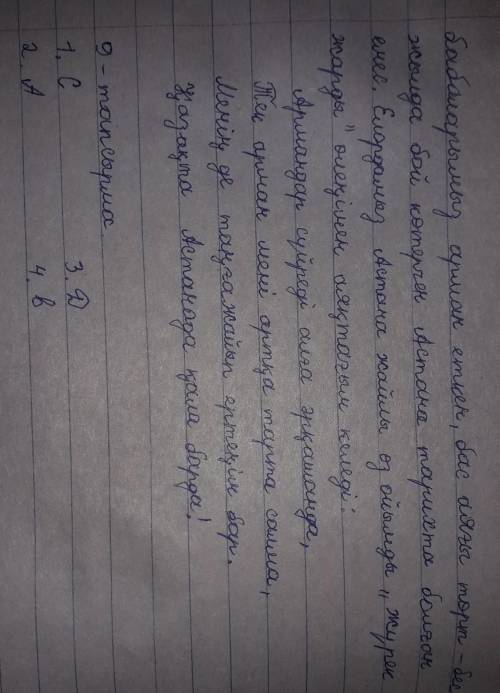 бабаларымыз арман еткен, бас аяғы төрт - бес
жылда бой көтерген Астана тарихта болған
емес. Елордамыз Астана жайлы өз ойымды „ жүрек
жарды " өлеңімен аяқтағым келеді:
Армандар сүйреді алға әрқашанда,
Тек арман мені артқа тарта салма,
Менің де таңғажайып ертегім бар.
Қазақта Астанадай қала барда!
9 - тапсырма
1. С 3. Д
2. А 4. в